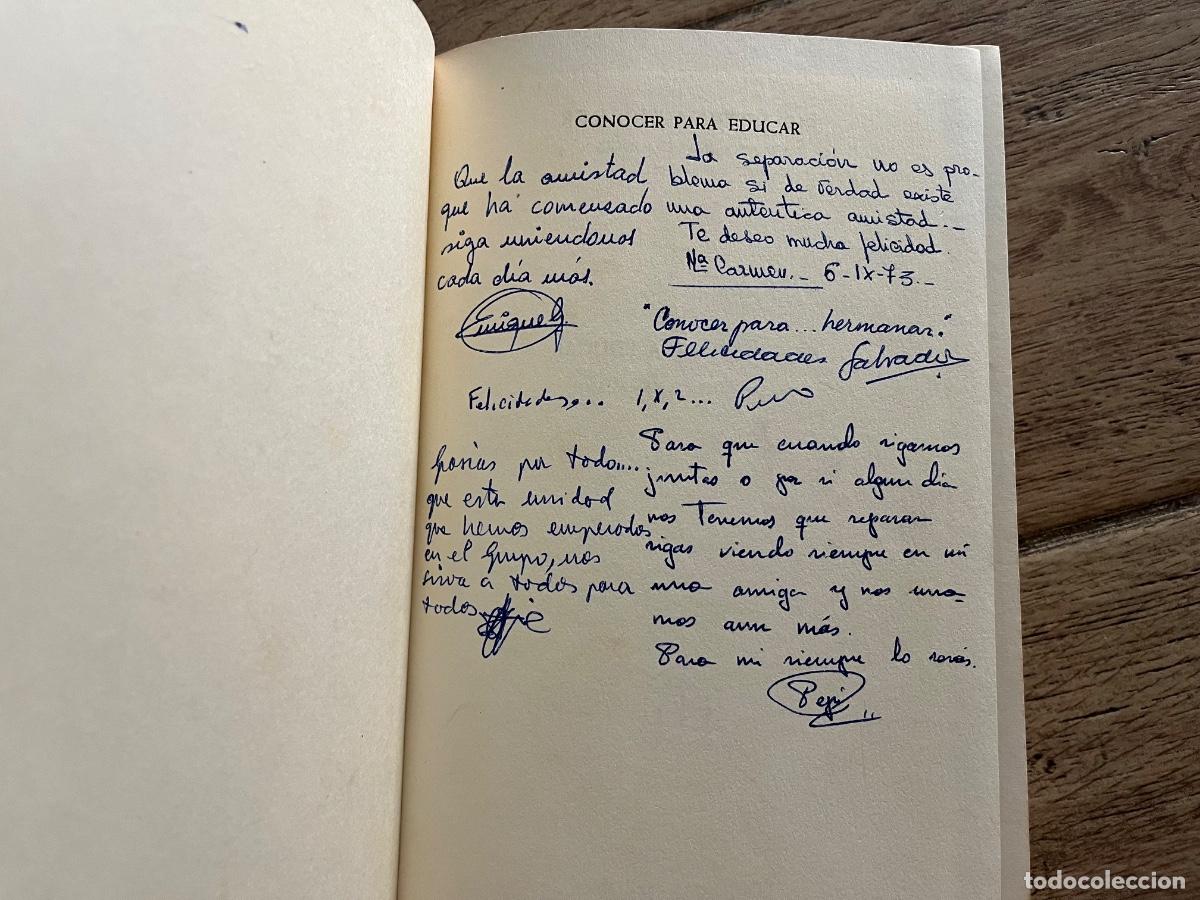 CONOCER PARA EDUCAR
Que la amistad
que ha comenzado
siga uniendonos
cada día más.
Enrique G.
La separación no es pro-
blema si de verdad existe
una autentica amistad.-
Te deseo mucha felicidad.
Mª Carmen.- 6-IX-73.-
"Conocer para... hermanar."
Felicidades Salvador
Felicidades,... 1, X, 2...
Gracias por todo....
que esta unidad
que hemos empezado
en el Grupo, nos
sirva a todos para
todos.
Para que cuando sigamos
juntas o por si algun dia
nos tenemos que separar
sigas viendo siempre en mi
una amiga y nos una-
mos aun más.
Para mi siempre lo serás.
Pepi
todocoleccion